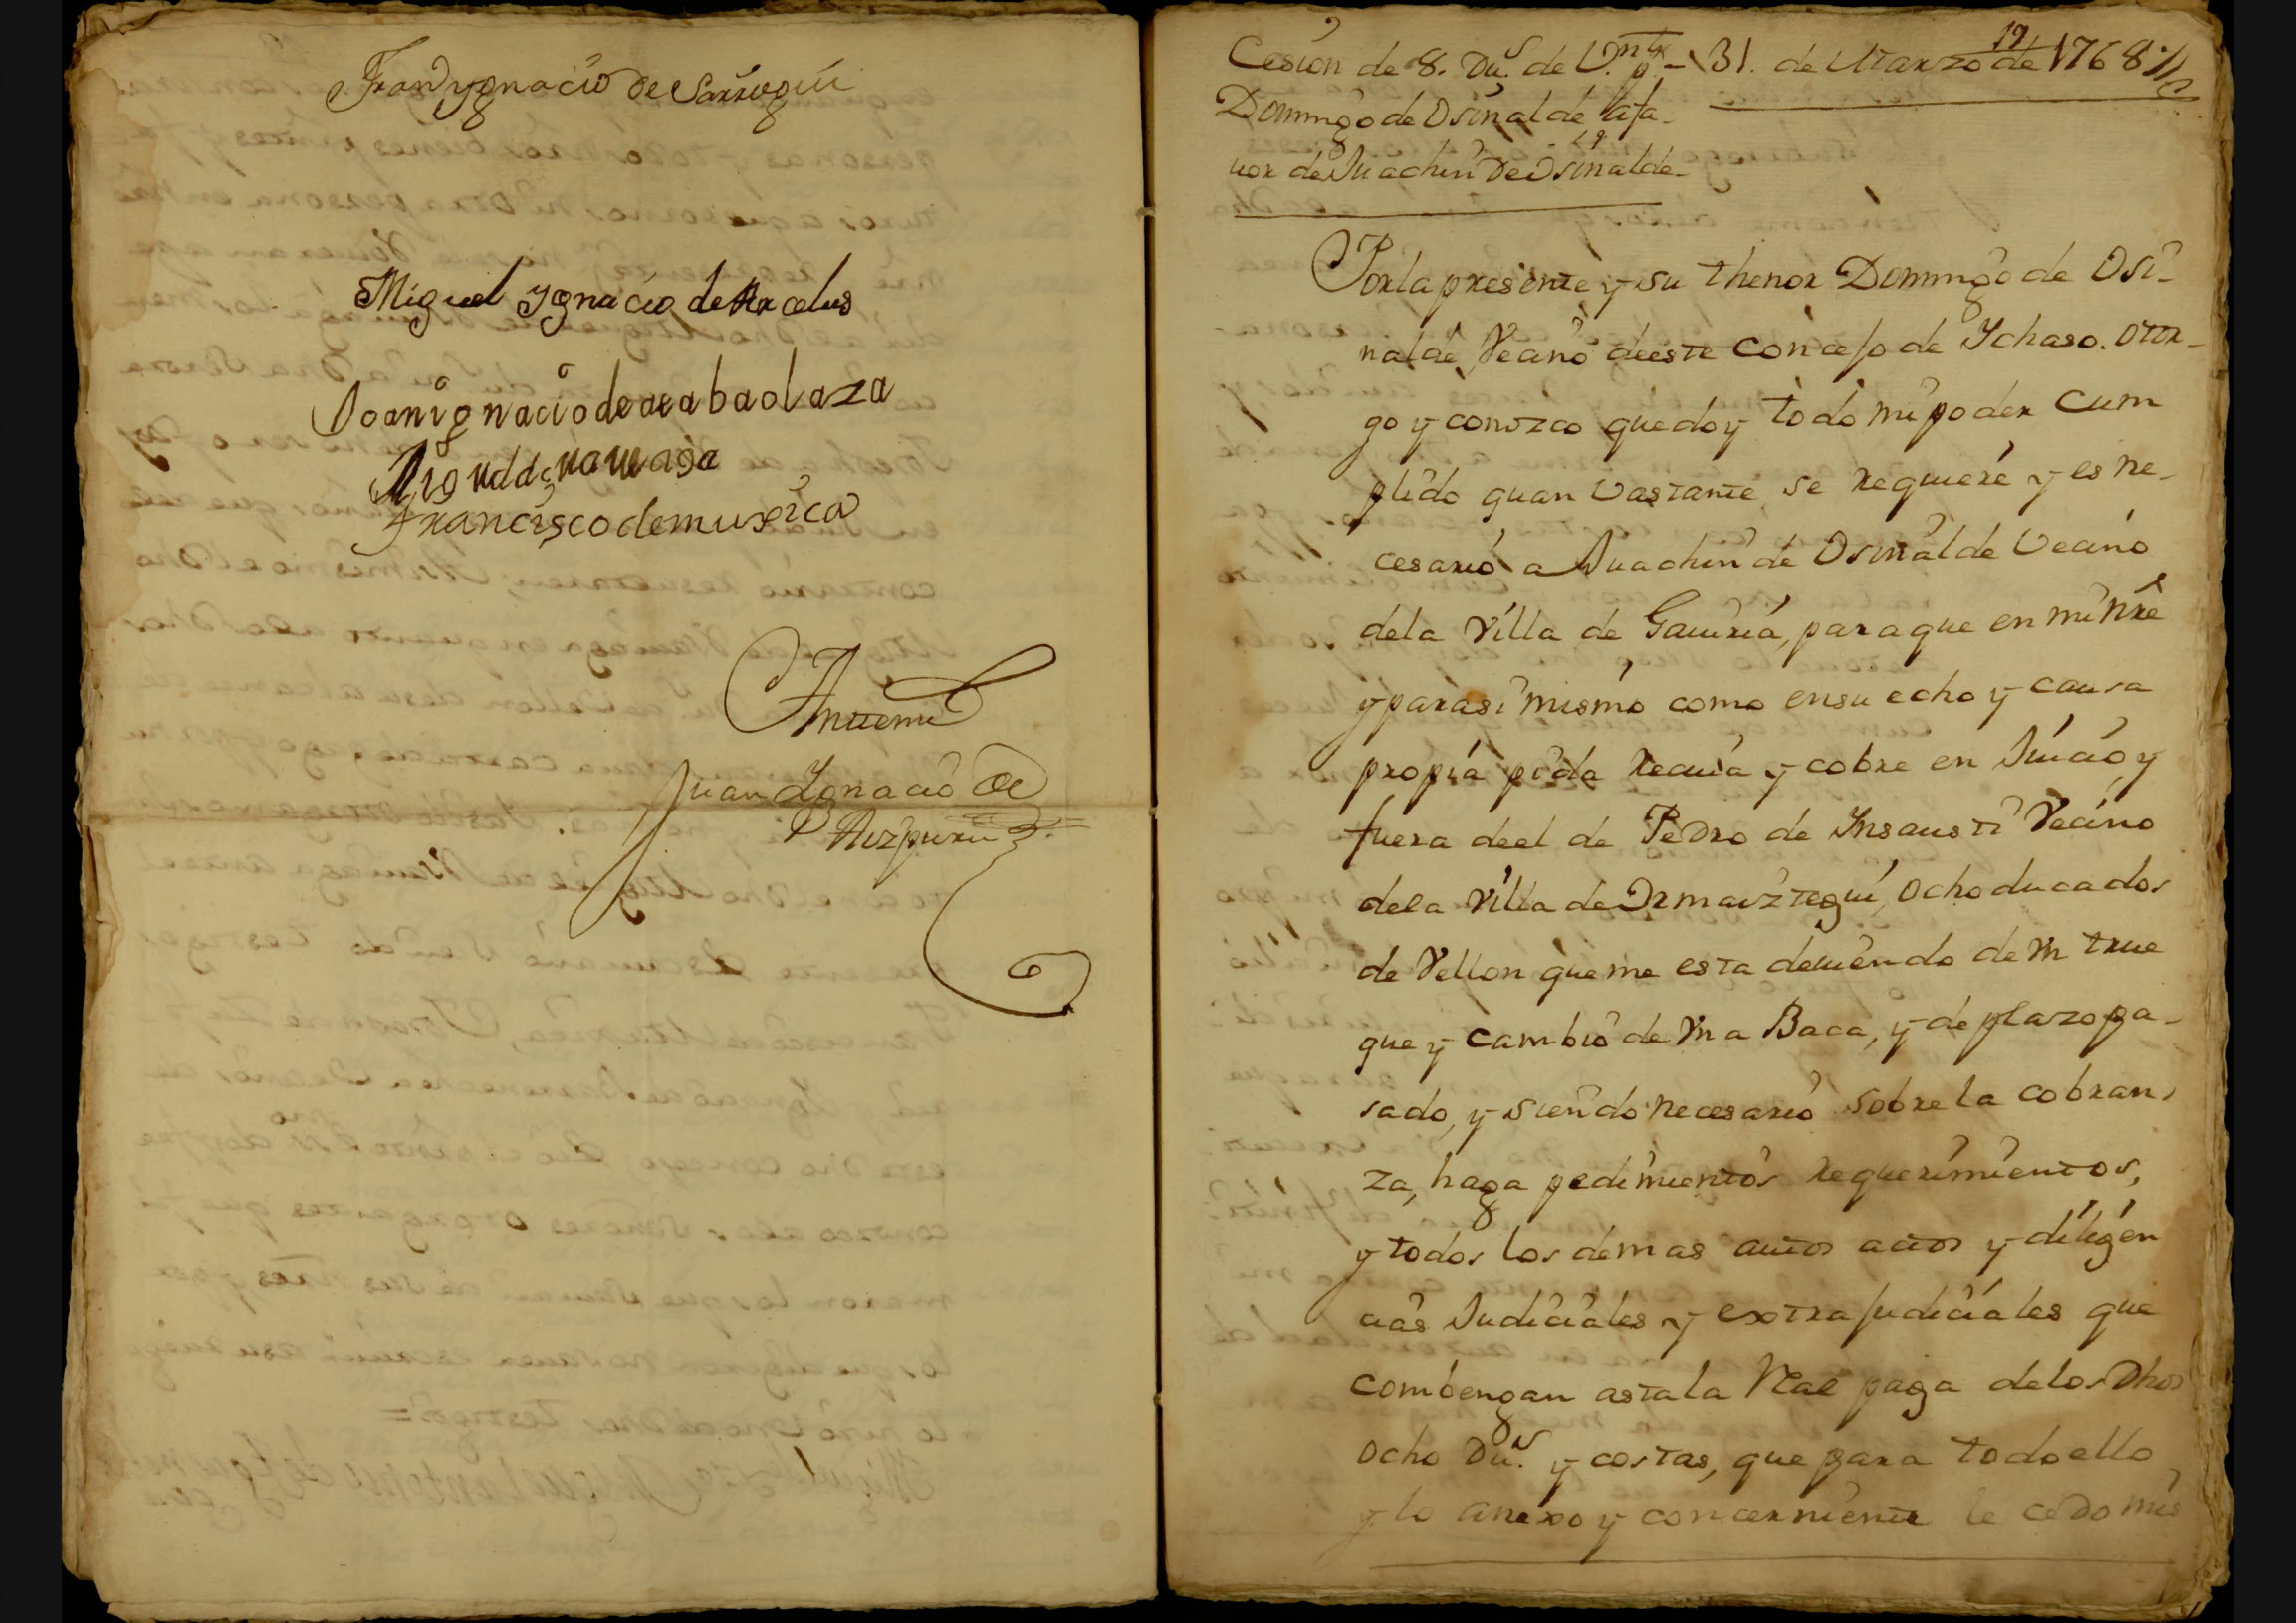 Fran ygnacio de Sarriegui
Miguel Ygnacio de Arcelus
Joan ignacio de arabaolaza
Miguel de
Francisco de muxica
Antte mi
Juan Ygnacio de
Aizpuru
Cesion de 8. Du.s de V.n p.r 31. de Marzo de 1768
19
Domingo de Osinalde a fa-
uor de Juachin de Osinalde-
Por la presente y su thenor Domingo de Osi-
nalde Vecino de este concejo de Ychaso. otor-
go y conozco que doy todo mi poder cum
plido quan vastante se requiere y es ne-
cesario a Juachin de Osinalde Vecino
de la Villa de Gauiria, para que en mi nre
y para si mismo como en su echo y causa
propia pida reciua y cobre en Juicio y
fuera de el de Pedro de Ynsausti Vecino
de la Villa de Ormaiztegui, ocho ducados
de Vellon que me esta deuiendo de Vn true
que y cambio de Vna Baca, y de plazo pa-
sado, y siendo necesario sobre la cobran-
za, haga pedimientos requerimientos,
y todos los demas autos actos y diligen
cias Judiciales y extrajudiciales que
combengan asta la Real paga de los Dhos
ocho Du.s y costas, que para todo ello
y lo anexo y concerniente le cedo mis